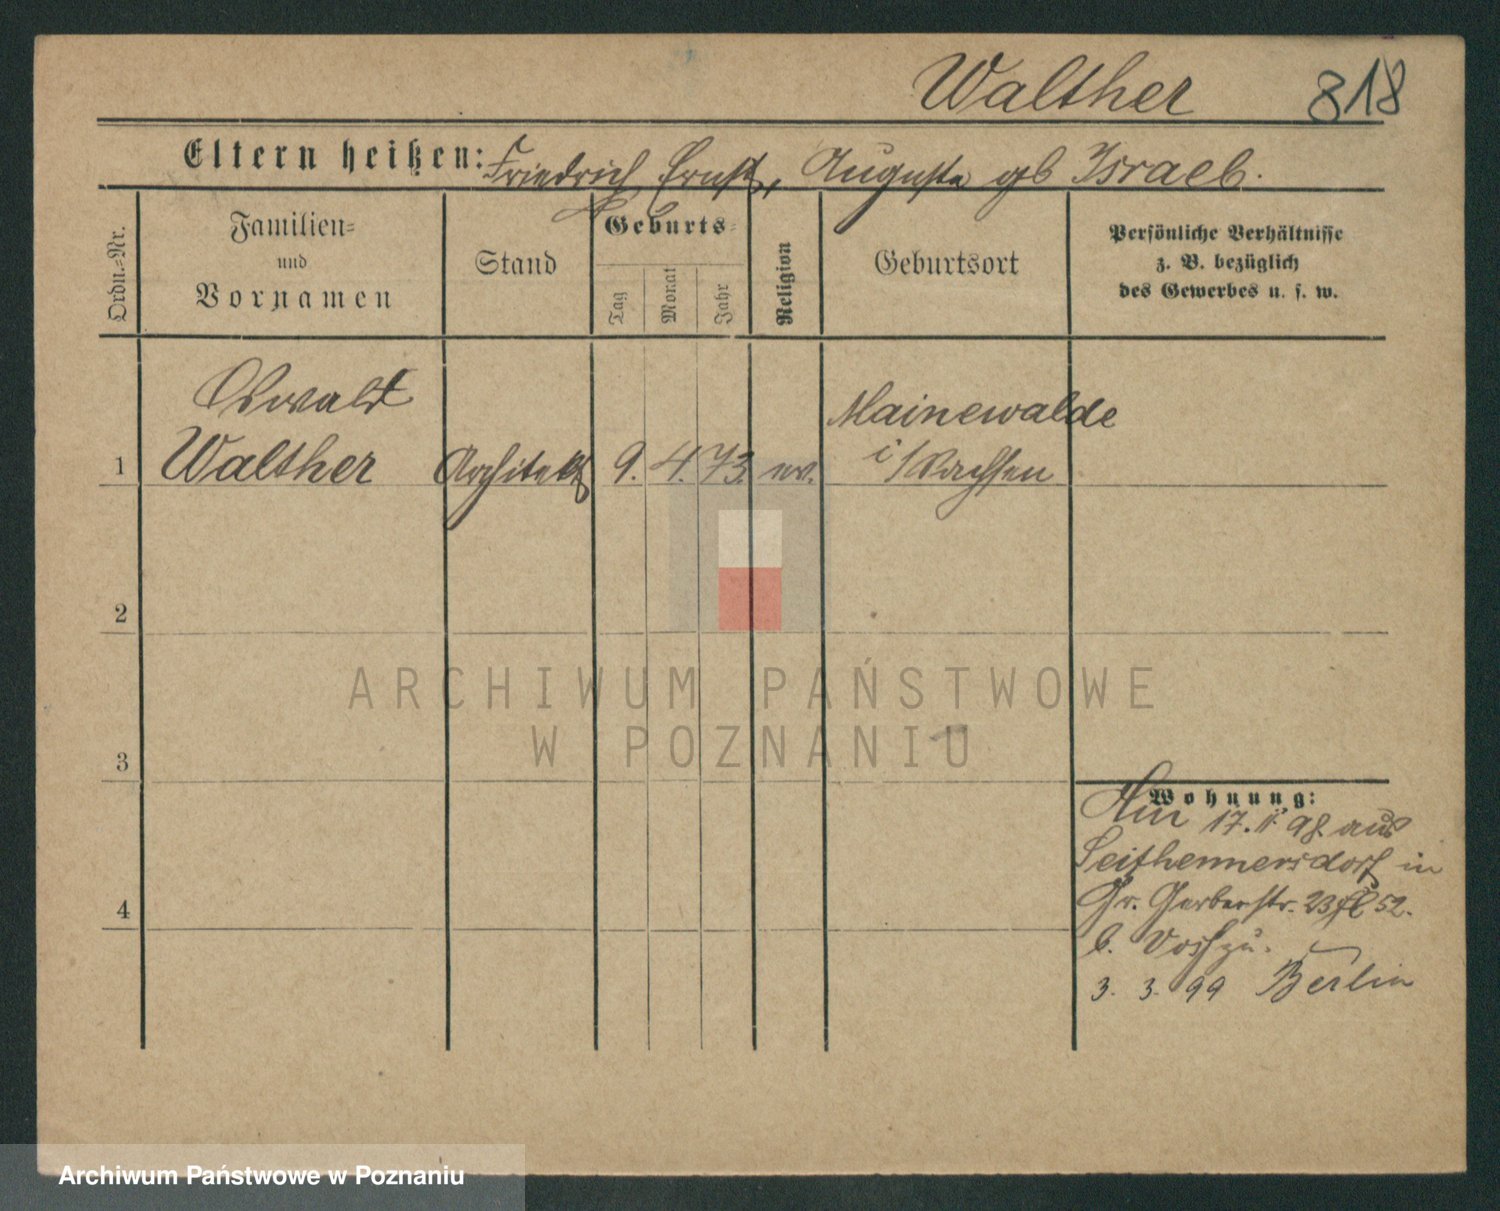 Walther 818
Eltern heißen: Friedrich Ernst, Auguste gb Israel.
Ordn.=Nr.
Familien=
und
Vornamen
Stand
Geburts=
Tag
Monat
Jahr
Religion
Geburtsort
Persönliche Verhältnisse
z. B. bezüglich
des Gewerbes u. s. w.
Oswald
1 Walther Architekt 9. 4. 73. ev.
Mainewalde
i/Sachsen
2
3
4
Wohnung:
17. 11 98 aus
Seifhennersdorf in
Gr. Gerberstr. 23 52.
b.
3. 3. 99 Berlin
ARCHIWUM PAŃSTWOWE
W POZNANIU
Archiwum Państwowe w Poznaniu